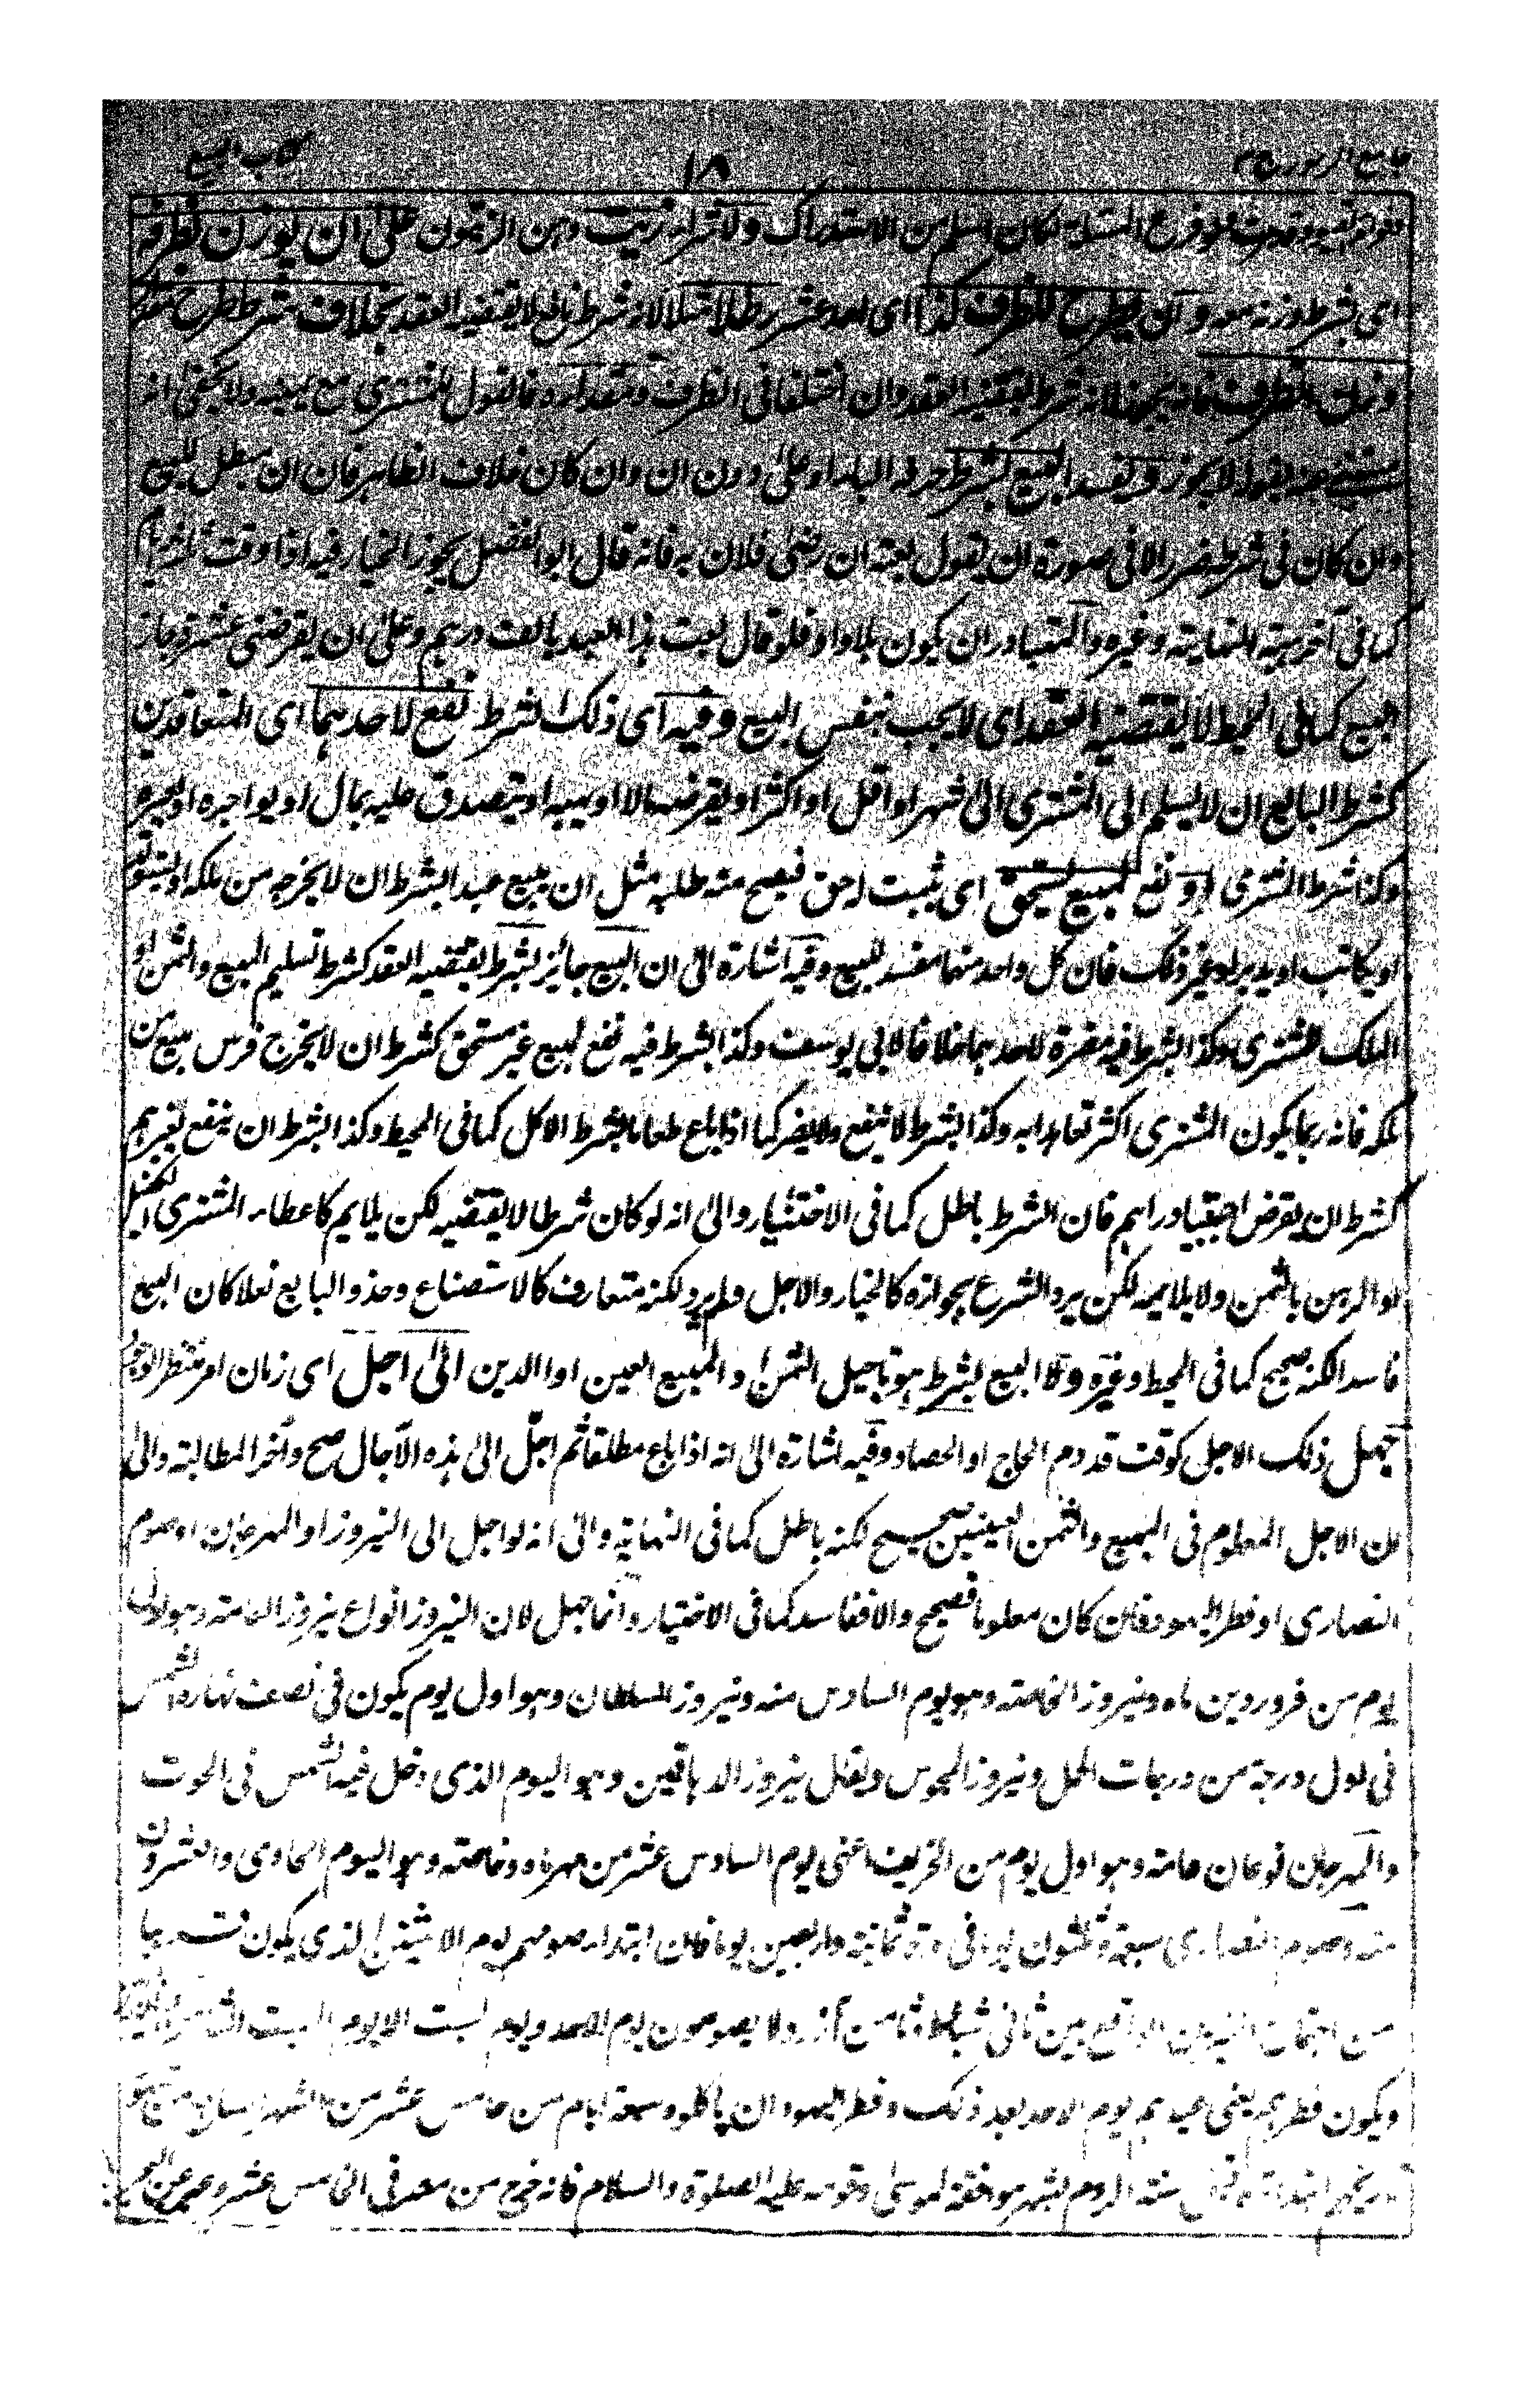 جامع الرموز ج ٣ ١٨ كتاب البيع
لكان اسلم من الاستدراك ولا شراء زيت وهن الزيتون على ان يوزن بظرفه
اى بشرط وزنه معه وان يطرح للظرف كذا اى احد عشر رطلا مثلا لانه شرط نافع لا يقتضيه العقد بخلاف شرط طرح مقدار
وزن الظرف فانه يجوز لانه شرط يقتضيه العقد وان اختلفا فى الظرف ومقداره فالقول للمشترى مع يمينه ولا يخفى انه
لا يجوز ويفسد البيع بشرط حرف الباء او على دون ان وان كان خلاف الظاهر فان ان مبطل للبيع
وان كان فى شرط ضرر الا فى صورة ان يقول بعته ان رضى فلان به فانه قال ابو الفضل يجوز الخيار فيه اذا وقت ثلثة ايام
كما فى النهاية وغيره والمتبادر ان يكون بلا واو فلو قال بعت هذا العبد بالف درهم وعلى ان يقرضنى عشرة جاز
البيع كما فى المحيط لا يقتضيه العقد اى لا يجب بنفس البيع وفيه اى ذلك الشرط نفع لاحدهما اى المتعاقدين
كشرط البايع ان لا يسلم الى المشترى الى شهر او اقل او اكثر او يقرضه مالا او يهبه او يتصدق عليه بمال او يواجره او يعيره
وكذا شرط المشترى او نفع لمبيع يستحق اى يثبت له حق فيصح منه طلبه مثل ان يبيع عبدا بشرط ان لا يخرجه من ملكه او
او يكاتب او يدبر او غير ذلك فان كل واحد منها مفسد للبيع وفيه اشارة الى ان البيع جائز بشرط يقتضيه العقد كشرط تسليم المبيع والثمن او
الملك للمشترى وكذا الشرط فيه مضرة لاحدهما خلافا لابى يوسف وكذا بشرط فيه نفع لمبيع غير مستحق كشرط ان لا يخرج فرس مبيع من
ملكه فانه ربما يكون المشترى اكثر تعاهدا به وكذا بشرط لا ينفع ولا يضر كما اذا باع طعاما بشرط الاكل كما فى المحيط وكذا بشرط ان ينفع لغيرهم
كشرط ان يقرض اجنبيا دراهم فان الشرط باطل كما فى الاختيار والى انه لو كان شرطا لا يقتضيه لكن يلايم كاعطاء المشترى الكفيل
او الرهن بالثمن ولا يلايمه لكن يرد الشرع بجوازه كالخيار والاجل ولم يرد لكنه متعارف كالاستصناع وحذو البايع نعلا كان البيع
فاسدا لكنه صحيح كما فى المحيط وغيره ولا البيع بشرط هو تاجيل الثمن او المبيع العين او الدين الى اجل اى زمان امر منتظر الوجود
جهل ذلك الاجل كوقت قدوم الحاج او الحصاد وفيه اشارة الى انه اذا باع مطلقا ثم اجل الى هذه الآجال صح وأخر المطالبة والى
ان الاجل المعلوم فى المبيع والثمن العينين صحيح لكنه باطل كما فى النهاية والى انه لو اجل الى النيروز او المهرجان او صوم
النصارى او فطر اليهود فان كان معلوما فصحيح والا ففاسد كما فى الاختيار وانما جهل لان النيروز انواع نيروز العامة وهو اول
يوم من فروردين ماه ونيروز الخاصة وهو يوم السادس منه ونيروز السلطان وهو اول يوم يكون فى نصف نهاره الشمس
فى اول درجة من درجات الحمل ونيروز المجوس ويقال نيروز الدهاقين وهو اليوم الذى دخل فيه الشمس فى الحوت
والمهرجان نوعان عامة وهو اول يوم من الخريف اعنى يوم السادس عشر من مهرماه وخاصة وهو اليوم الحادى والعشرون
منه وصوم النصارى سبعة وثلثون يوما فى مدة ثمانية واربعين يوما فان ابتداء صومهم يوم الاثنين الذى يكون قريبا
من اجتماع النيرين الواقع بين ثانى شباط وثامن آذر ولا يصومون يوم الاحد ويوم السبت الا يوم السبت
ويكون فطرهم يعنى عيدهم يوم الاحد بعد ذلك وفطر اليهود ان ياكلوا سبعة ايام من خامس عشر من
سنة الروم بشهر موافقة لموسى وقومه عليه الصلوة والسلام فانه خرج من مصر فى الخامس عشر وعبر عن البحر